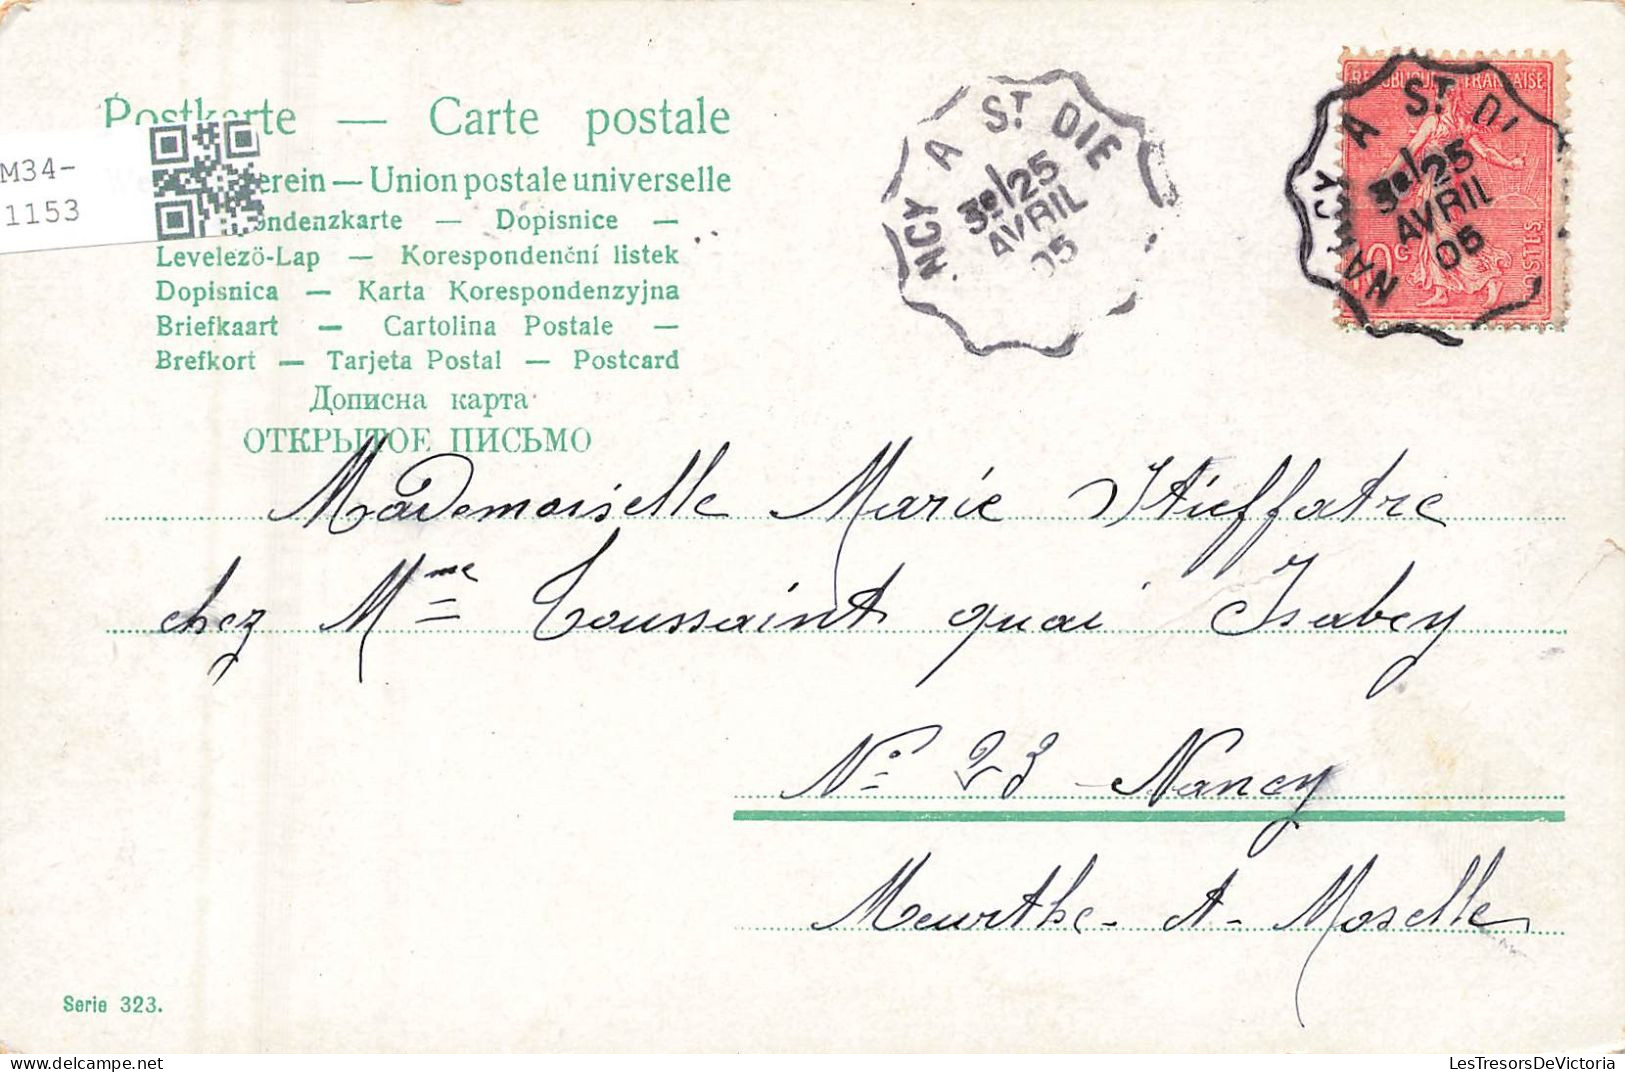 Postkarte — Carte postale
erein — Union postale universelle
ondenzkarte — Dopisnice —
Levelezö-Lap — Korespondenční listek
Dopisnica — Karta Korespondenzyjna
Briefkaart — Cartolina Postale —
Brefkort — Tarjeta Postal — Postcard
Дописна карта
ОТКРЫТОЕ ПИСЬМО
M34-
1153
NCY A ST DIE
3e/25
AVRIL
05
REPUBLIQUE FRANÇAISE
NANCY A ST DI
3e/25
AVRIL
05
0c
Mademoiselle Marie
chez Mme Toussaint quai Isabey
No 23 Nancy
Meurthe-et-Moselle
Serie 323.
LesTresorsDeVictoria